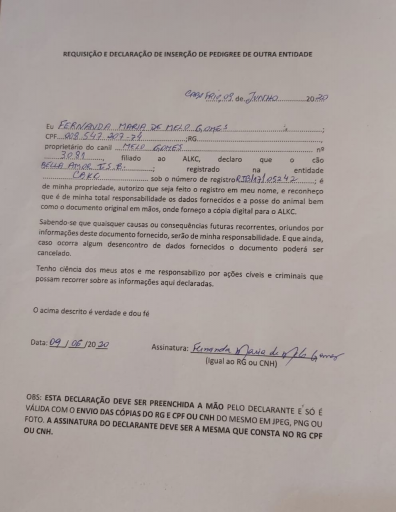 REQUISIÇÃO E DECLARAÇÃO DE INSERÇÃO DE PEDIGREE DE OUTRA ENTIDADE
CABO FRIO, 09 de JUNHO 2020
Eu FERNANDA MARIA DE MELO GOMES ;
CPF 008.547.207-74 ;RG ,
proprietário do canil MELO GOMES nº
3081, filiado ao ALKC, declaro que o cão
BELLA AMOR I.S.B. ; registrado na entidade
CAKC sob o número de registro ; é
de minha propriedade, autorizo que seja feito o registro em meu nome, e reconheço
que é de minha total responsabilidade os dados fornecidos e a posse do animal bem
como o documento original em mãos, onde forneço a cópia digital para o ALKC.
Sabendo-se que quaisquer causas ou consequências futuras recorrentes, oriundos por
informações deste documento fornecido, serão de minha responsabilidade. E que ainda,
caso ocorra algum desencontro de dados fornecidos o documento poderá ser
cancelado.
Tenho ciência dos meus atos e me responsabilizo por ações cíveis e criminais que
possam recorrer sobre as informações aqui declaradas.
O acima descrito é verdade e dou fé
Data: 09/06/2020 Assinatura: Fernanda Maria de Melo Gomes
(igual ao RG ou CNH)
OBS: ESTA DECLARAÇÃO DEVE SER PREENCHIDA A MÃO PELO DECLARANTE E SÓ É
VÁLIDA COM O ENVIO DAS CÓPIAS DO RG E CPF OU CNH DO MESMO EM JPEG, PNG OU
FOTO. A ASSINATURA DO DECLARANTE DEVE SER A MESMA QUE CONSTA NO RG CPF
OU CNH.